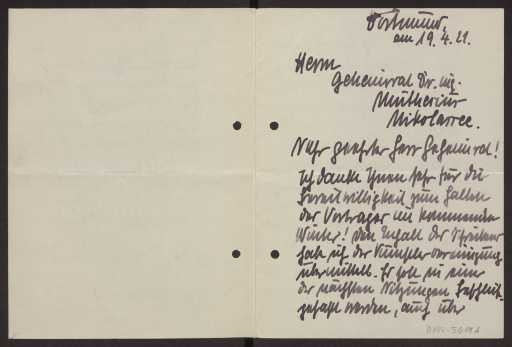 Dortmund,
am 19.4.21.
Herrn
Geheimrat Dr. ing.
Muthesius
Nikolassee.
Sehr geehrter Herr Geheimrat!
Ich danke Ihnen sehr für die
Bereitwilligkeit zum Halten
des Vortrages im kommenden
Winter! Den Inhalt des Schreibens
habe ich der Künstlervereinigung
übermittelt. Er soll in einer
der nächsten Sitzungen
gefaßt werden, auch über